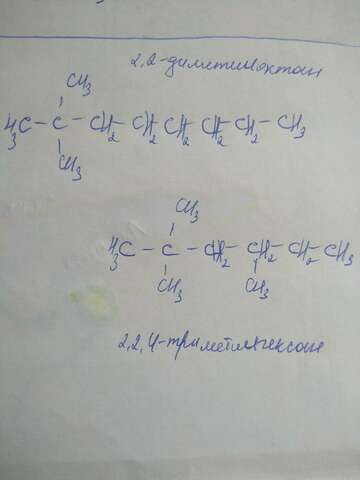 2,2-диметилоктан
CH3
H3C-C-CH2-CH2-CH2-CH2-CH2-CH3
CH3
CH3
H3C-C-CH2-CH2-CH2-CH3
CH3 CH3
2,2,4-триметилгексан